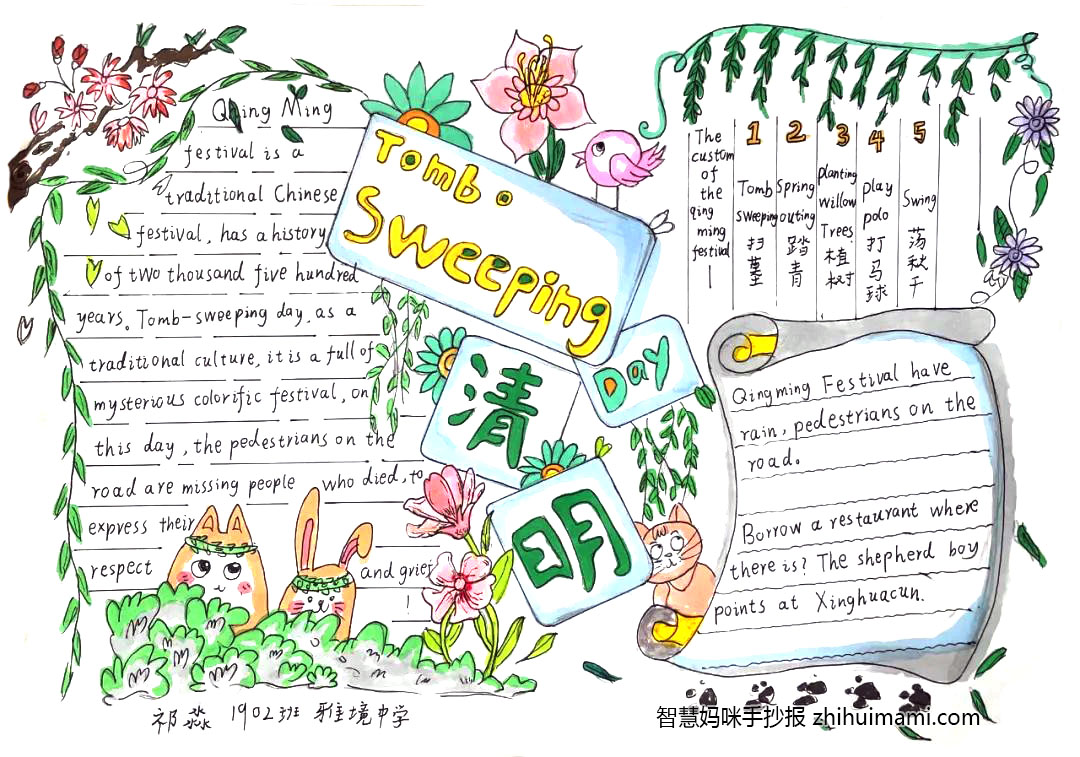 Qing Ming
festival is a
traditional Chinese
festival, has a history
of two thousand five hundred
years. Tomb-sweeping day, as a
traditional culture, it is a full of
mysterious colorific festival, on
this day, the pedestrians on the
road are missing people who died, to
express their
respect and grief
!
Tomb
Sweeping
Day
清
明
The
custom
of
the
qing
ming
festival
1
Tomb
Sweeping
扫
墓
2
Spring
outing
踏
青
3
planting
willow
Trees
植
树
4
play
polo
打
马
球
5
Swing
荡
秋
千
Qingming Festival have
rain, pedestrians on the
road.
Borrow a restaurant where
there is? The shepherd boy
points at Xinghuacun.
祁淼 1902班 雅境中学
智慧妈咪手抄报 zhihuimami.com